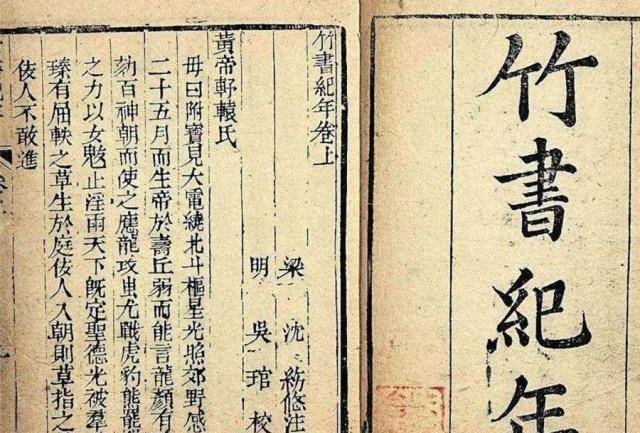 竹書紀年
竹書紀年卷上
梁 沈約附注
明 吳琯校
黃帝軒轅氏
母曰附寶見大電繞北斗樞星光照郊野感
二十五月而生帝於壽丘弱而能言龍顏有
劾百神朝而使之應龍攻蚩尤戰虎豹熊羆
之力以女魃止淫雨天下既定聖德光被群
臻有屈軼之草生於庭佞人入朝則草指之
佞人不敢進